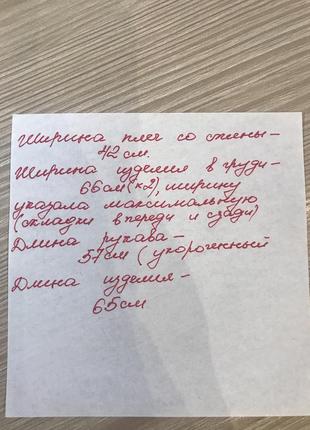 Ширина плеч со спены-
42 см.
Ширина изделия в груди-
66см(×2), ширину
указала максимальную
(складки впереди и сзади)
Длина рукава-
57см (укороченный
Длина изделия-
65см